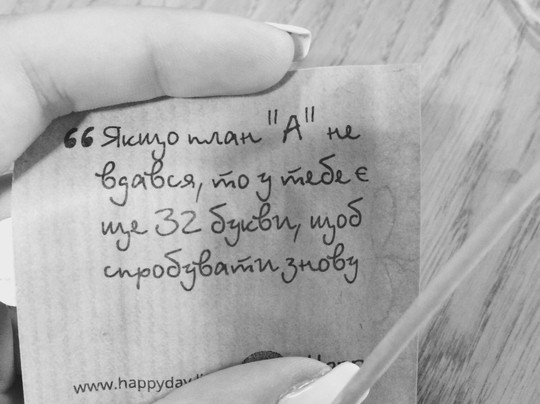 “ Якщо план "А" не
вдався, то у тебе є
ще 32 букви, щоб
спробувати знову
www.happyday